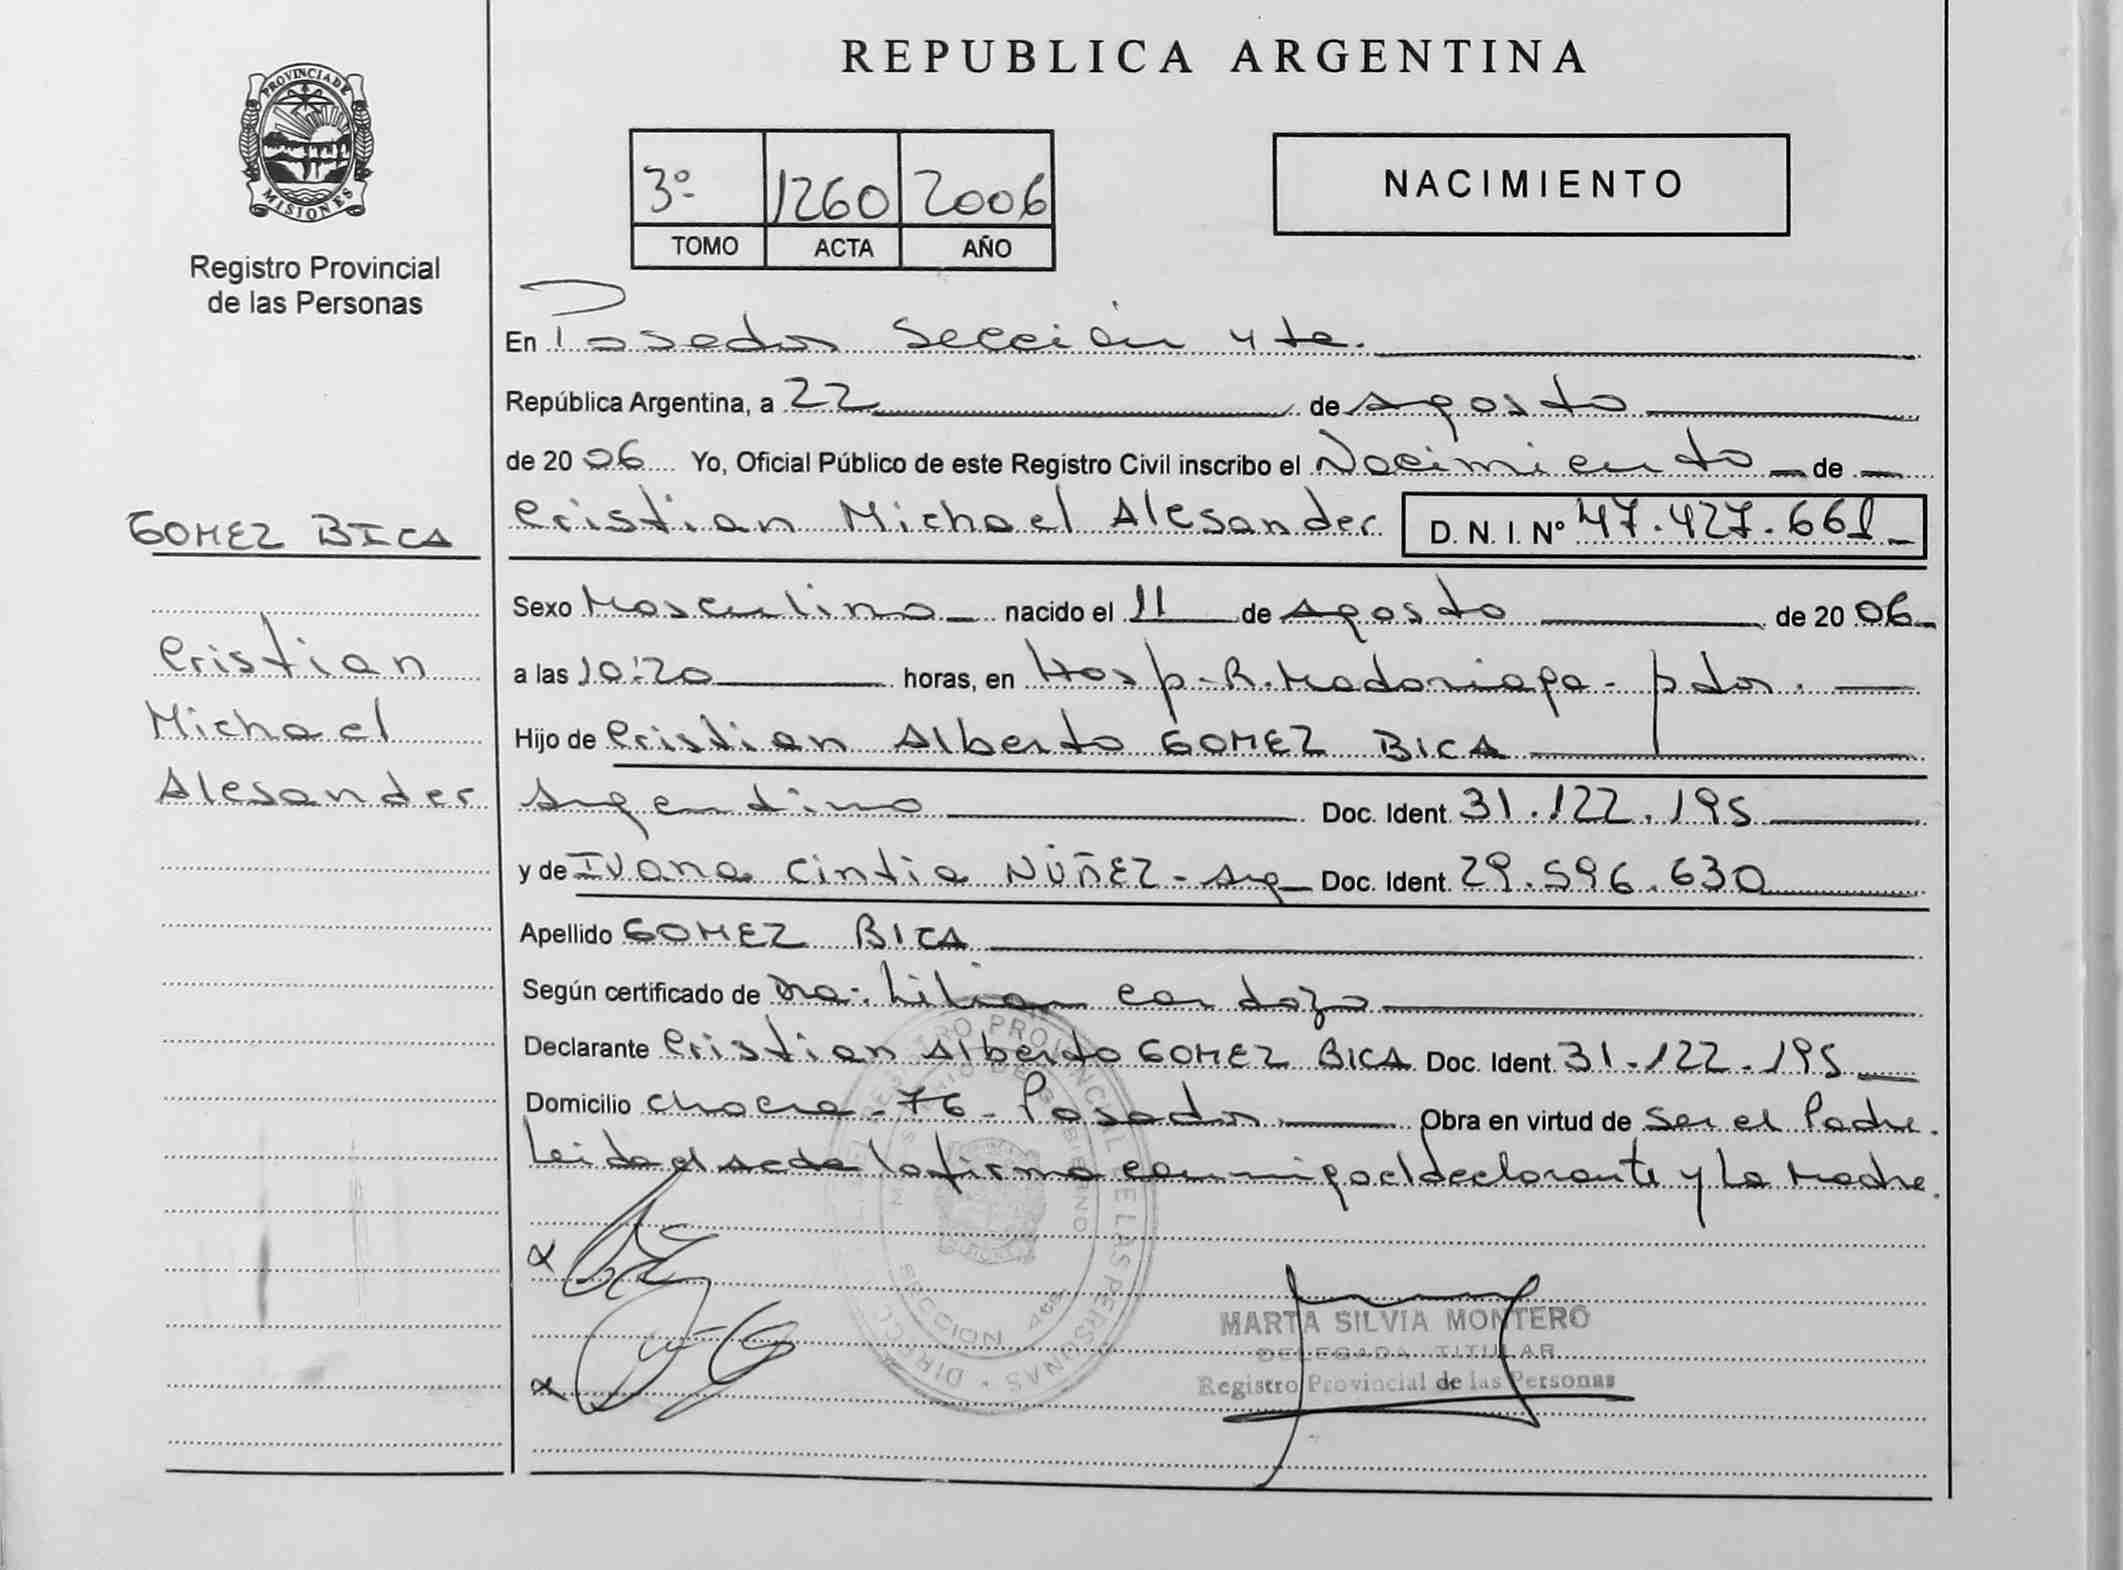 REPUBLICA ARGENTINA
PROVINCIA DE
MISIONES
Registro Provincial
de las Personas
3º 1260 2006
TOMO ACTA AÑO
NACIMIENTO
En Posadas Sección 4ta.
República Argentina, a 22 de Agosto
de 2006 Yo, Oficial Público de este Registro Civil inscribo el Nacimiento de
Cristian Michael Alesander D. N. I. Nº 47.427.661
GOMEZ BICA
Cristian
Michael
Alesander
Sexo Masculino nacido el 11 de Agosto de 2006
a las 10:20 horas, en Hosp. R. Madariaga - pdas.
Hijo de Cristian Alberto GOMEZ BICA
Argentino Doc. Ident. 31.122.195
y de Ivana Cintia NÚÑEZ - Arg Doc. Ident. 29.596.630
Apellido GOMEZ BICA
Según certificado de Dra. Lilian Cardozo
Declarante Cristian Alberto GOMEZ BICA Doc. Ident. 31.122.195
Domicilio chacra - 76 - Posadas Obra en virtud de ser el Padre.
Leida el acta la firma conmigo el declarante y la Madre.
REGISTRO PROVINCIAL DE LAS PERSONAS
SECCION 4ta
MARTA SILVIA MONTERO
DELEGADA TITULAR
Registro Provincial de las Personas